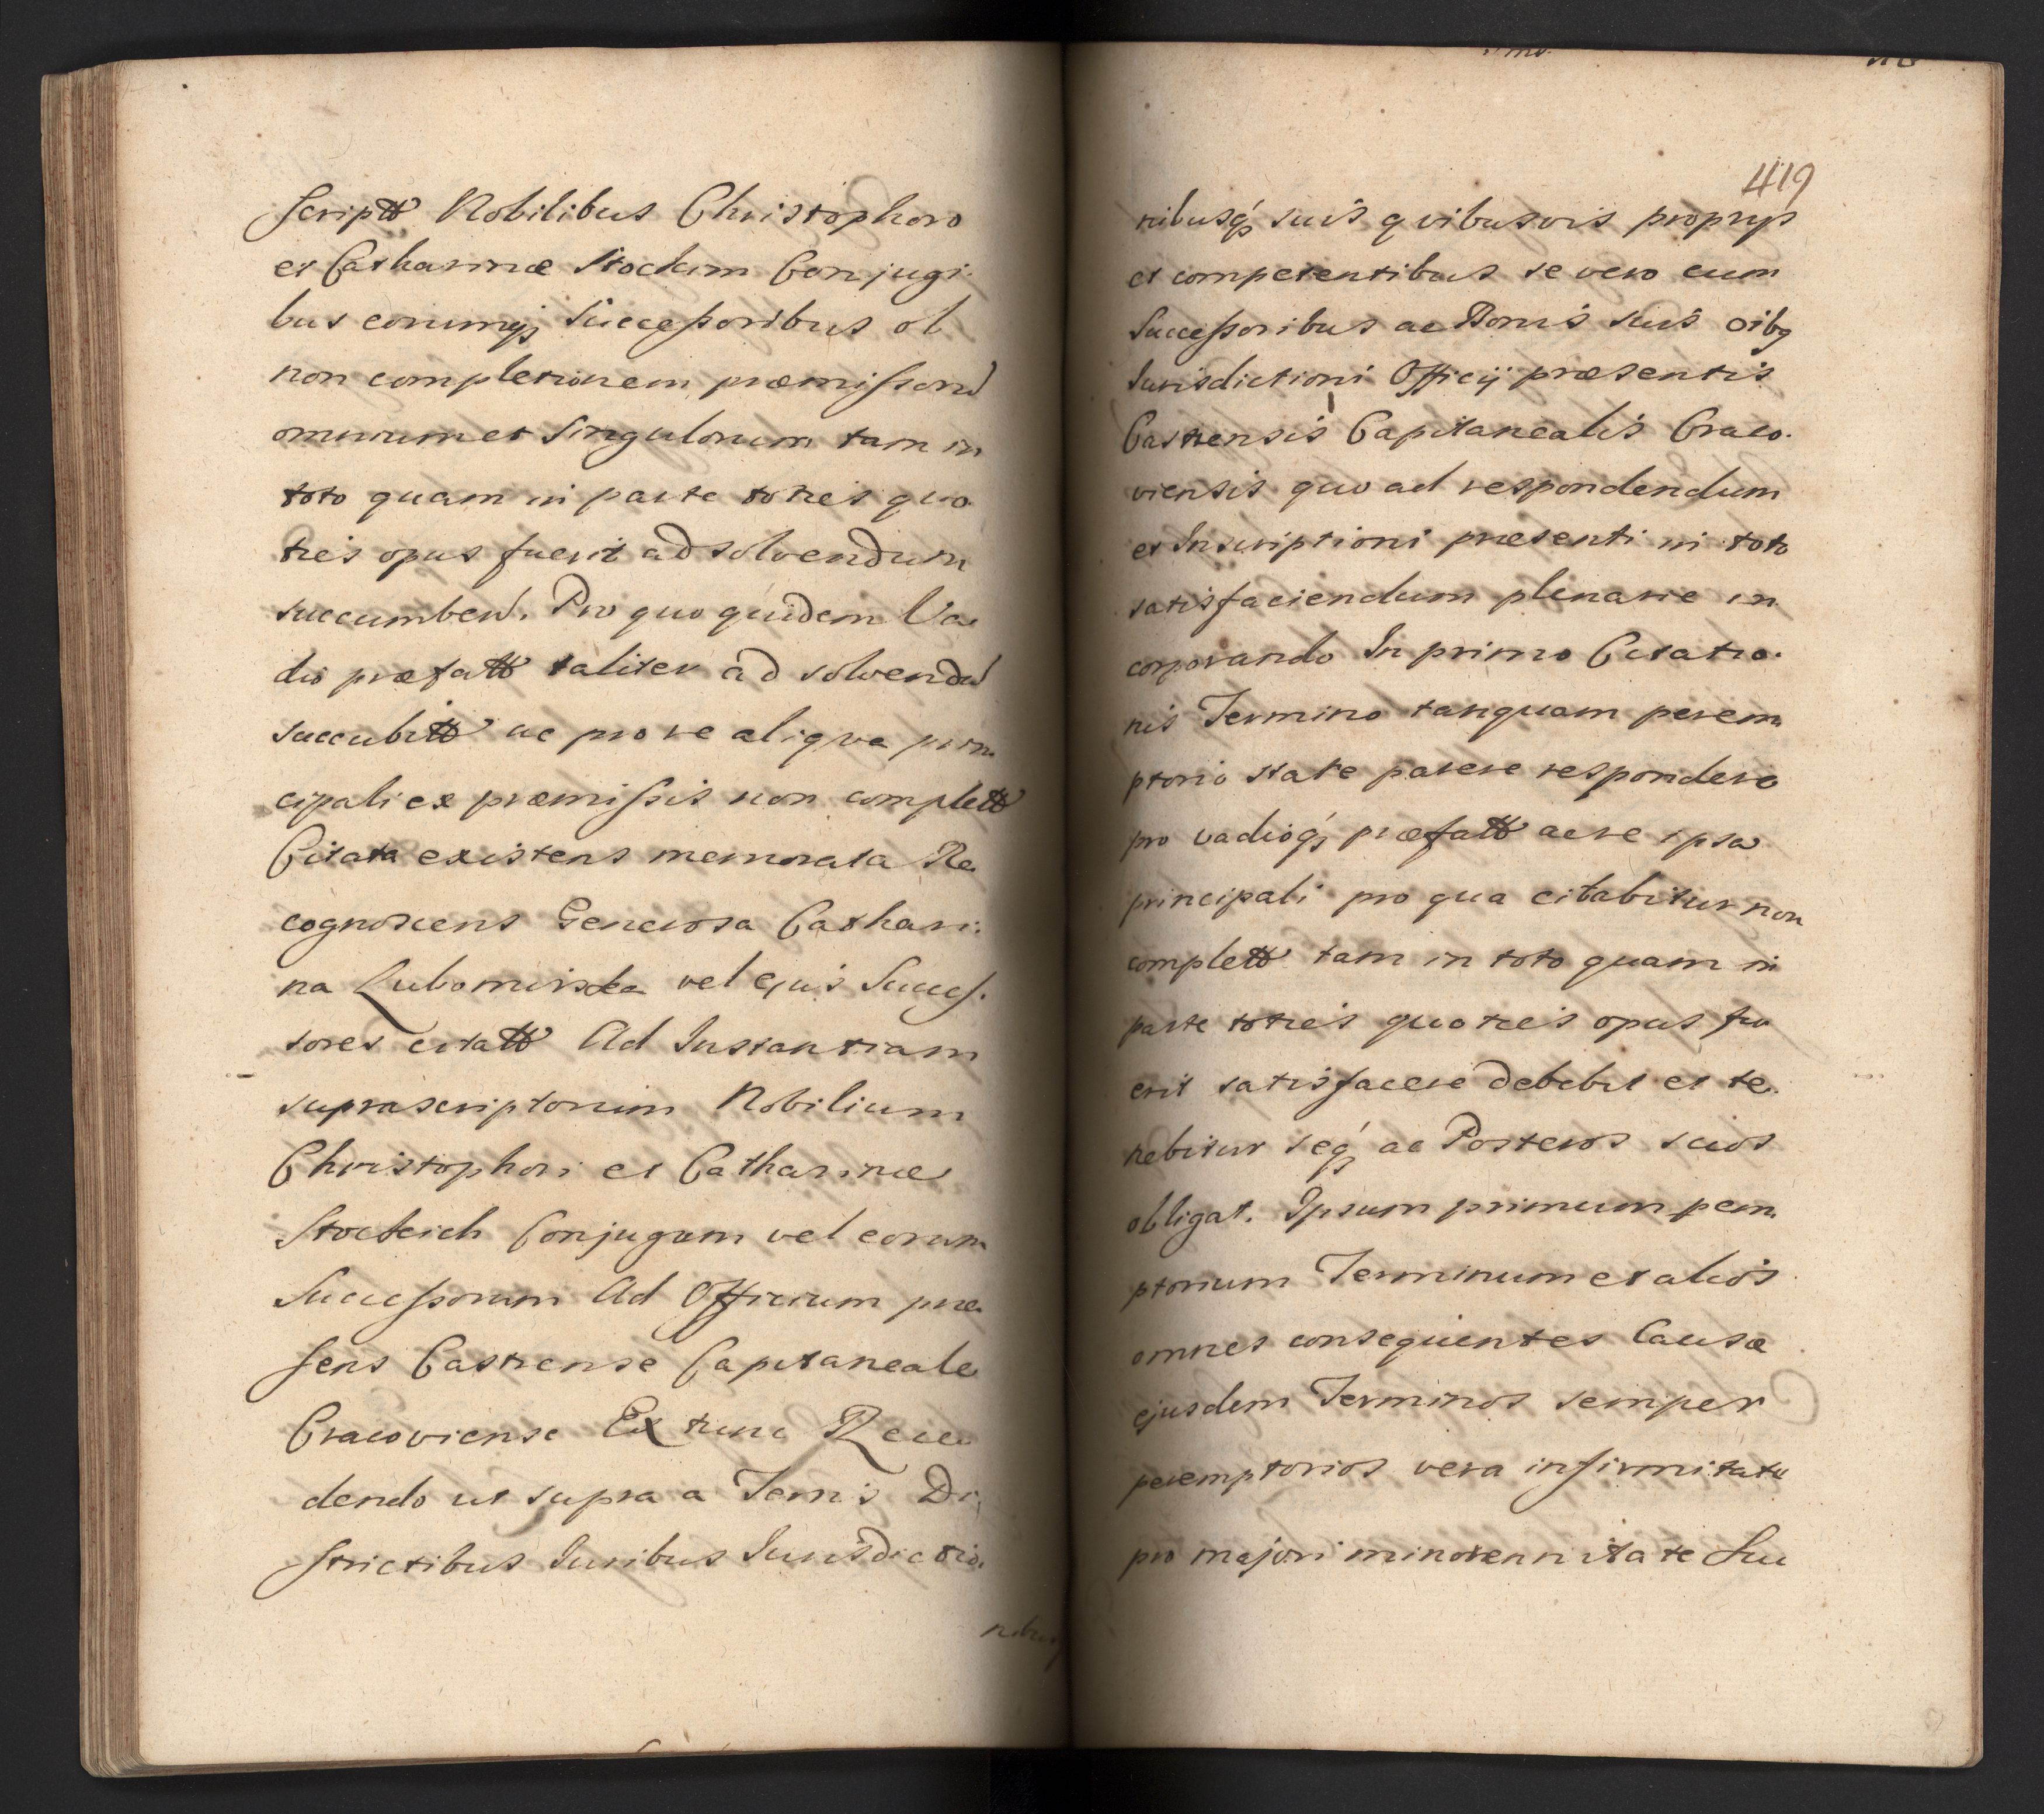 scriptt Nobilibus Christophoro
et Catharinæ Conjugi-
bus eorumqz Successoribus ob
non completionem præmissord
omnium et singulorum tam in
toto quam in parte toties quo
ties opus fuerit ad solvendum
succumbend. Pro quo quidem Va
dio præfatt taliter ad solvendd
succubitt ac pro re aliqva prin
cipali ex præmissis non complett
Citata existens memorata Re
cognoscens Generosa Cathari:
na Lubomirska vel ejus Succes.
sores citatt Ad Instantiam
suprascriptorum Nobilium
Christophori et Catharinæ
Conjugum vel eorum
Successorum Ad Officium præ
sens Castrense Capitaneale
Cracoviense Ex tunc Rece
dendo ut supra a Terris Di
strictibus Juribus Jurisdictio.
nibusq
419
nibusqz suis qvibusvis proprijs
et competentibus se vero cum
Successoribus ac Bonis suis oibq
Jurisdictioni Officij præsentis
Castrensis Capitanealis Craco.
viensis quo ad respondendum
et Inscriptioni præsenti in toto
satisfaciendum plenarie in
corporando In primo Citatio.
nis Termino tanquam perem
ptorio stare parere respondere
pro vadioqz præfatt ac re ipsa
principali pro qua citabitur non
complett tam in toto quam in
parte toties quoties opus fu
erit satisfacere debebit et te.
nebitur seqz ac Posteros suos
obligat. Ipsum primum pem
ptorium Terminum et alios
omnes consequentes Causæ
ejusdem Terminos semper
peremptorios vera infirmitate
pro majori minorennitate Suc